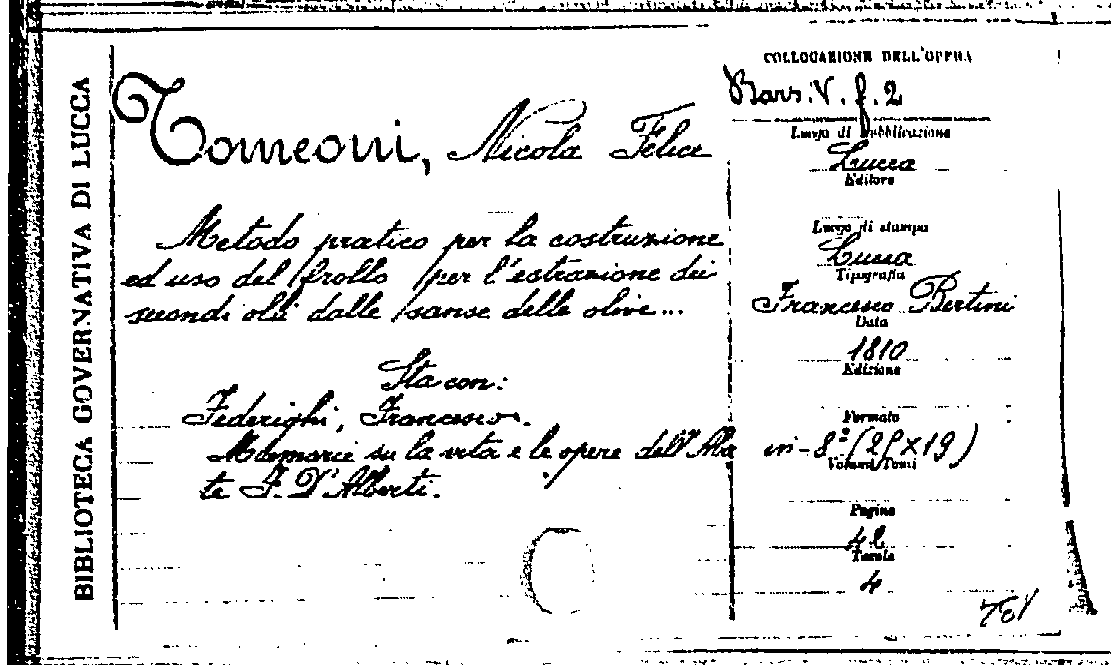 BIBLIOTECA GOVERNATIVA DI LUCCA
Tomeoni, Nicola Felice
Metodo pratico per la costruzione
ed uso del frollo per l'estrazione dei
secondi oli dalle sanse delle olive...
Sta con:
Federighi, Francesco.
Memorie su la vita e le opere dell'Aba
te F. D'Alberti.
COLLOCAZIONE DELL'OPERA
Bars. V. f. 2
Luogo di pubblicazione
Lucca
Editore
Luogo di stampa
Lucca
Tipografia
Francesco Bertini
Data
1810
Edizione
Formato
in-8º
Volumi/Tomi
Pagine
Tavole
4